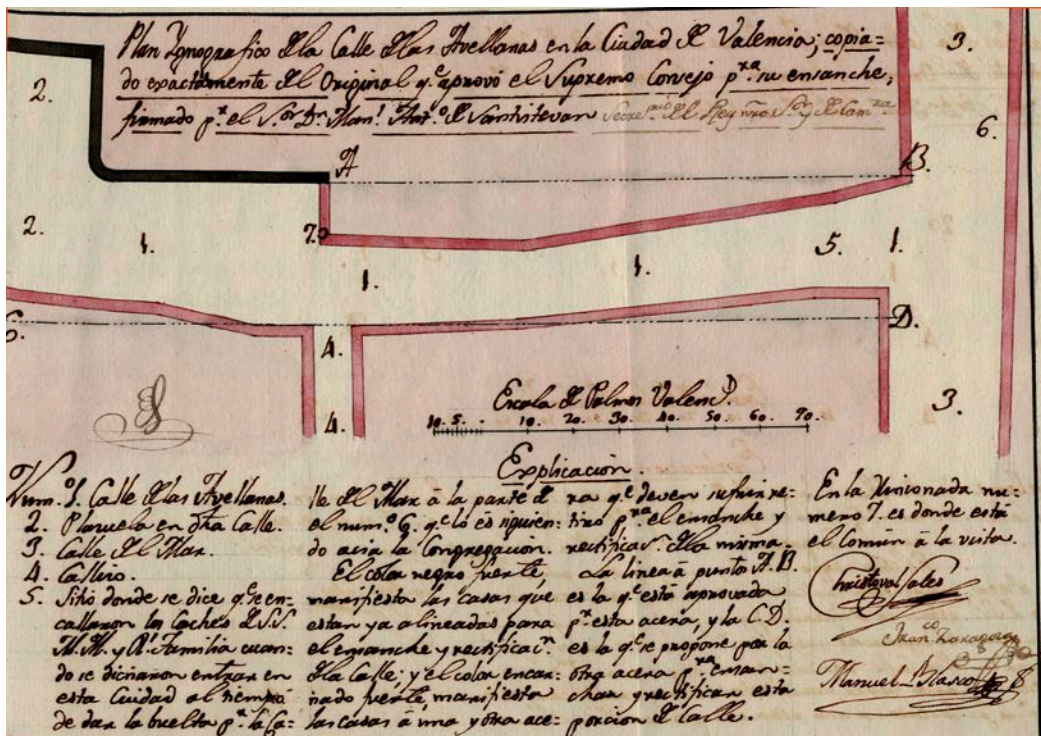 Plan Ygnografico de la Calle de las Avellanas en la Ciudad de Valencia; copia=
do exactamente del Original q.e aprovó el Supremo Consejo p.ra su ensanche,
firmado p.r el S.or D.n Man.l Ant.o de Santistevan Secre.rio del Rey nro S.or y de Cam.ra
2.
3.
6.
A
B.
2.
1.
7.
1.
1.
5.
1.
C.
D.
4.
4.
3.
Escala de Palmos Valenc.s
10. 5. 10. 20. 30. 40. 50. 60. 70.
Explicación.
Num.o 1. Calle de las Avellanas.
2. Plazuela en dha Calle.
3. Calle del Mar.
4. Callizo.
5. Sitio donde se dice q.e se en=
callaron los Coches de S.S.
M.M. y R.l Familia cuan=
do se dignaron entrar en
esta Ciudad al tiempo
de dar la buelta p.r la Ca=
lle del Mar à la parte de
el num.o 6. q.e lo es siguien=
do acia la Congregacion.
El color negro fuerte,
manifiesta las casas que
estan ya alineadas para
el ensanche y rectificac.n
de la Calle; y el color encar=
nado fuerte, manifiesta
las casas à una y otra ace=
ra q.e deven sufrir re=
tiro p.a el ensanche y
rectificac.n de la misma.
La linea à puntos A.B.
es la q.e está aprovada
p.a esta acera, y la C.D.
es la q.e se propone por la
otra acera p.ra ensan=
char y rectificar esta
porcion de Calle.
En la Rinconada nu=
mero 7. es donde está
el común à la vista.
Christoval Sales
Fran.co
Manuel Blasco